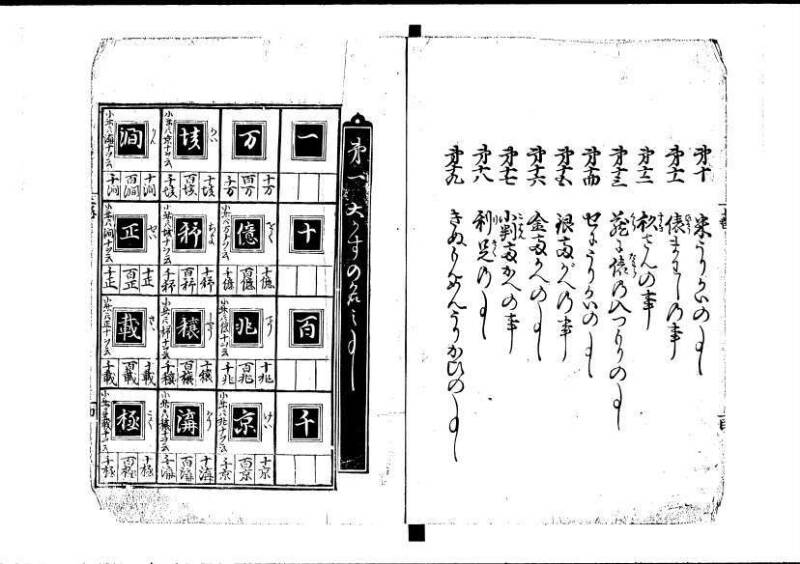 第十 米うりかいの事
第十一 俵まわしの事
第十二 杉さんの事
第十三 蔵に俵の入つもりの事
第十四 ぜにうりかいの事
第十五 銀両かへの事
第十六 金両かへの事
第十七 小判両かへの事
第十八 利足の事
第十九 きぬもめんうりかいの事
第一 大かずの名之事
一
十
百
千
万
十万 百万 千万
億
十億 百億 千億
兆
十兆 百兆 千兆
京 けい
十京 百京 千京
垓 がい
十垓 百垓 千垓
秭
十秭 百秭 千秭
穣
十穣 百穣 千穣
溝 かう
十溝 百溝 千溝
澗 かん
十澗 百澗 千澗
正 せい
十正 百正 千正
載 さい
十載 百載 千載
極 ごく
十極 百極 千極